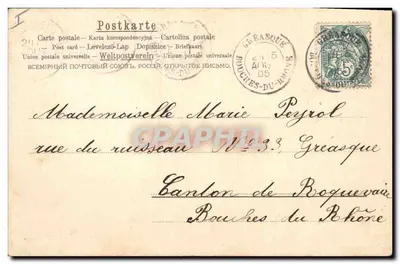 Postkarte
Carte postale – Karta korrespondencyjna – Cartolina postale
Post card – Levelező-Lap – Dopisnice – Briefkaart
Union postale universelle – Weltpostverein – Unione postale universale
ВСЕМІРНЫЙ ПОЧТОВЫЙ СОЮЗЪ. РОССІЯ. ОТКРЫТОЕ ПИСЬМО.
GRÉASQUE
5
AVRIL
05
BOUCHES-DU-RHONE
5
Mademoiselle Marie Peyrol
rue du ruisseau No 33 Gréasque
CPARAMA
Canton de Roquevaire
Bouches du Rhône